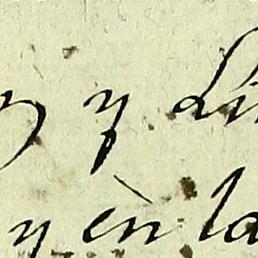 y Li
y èn la